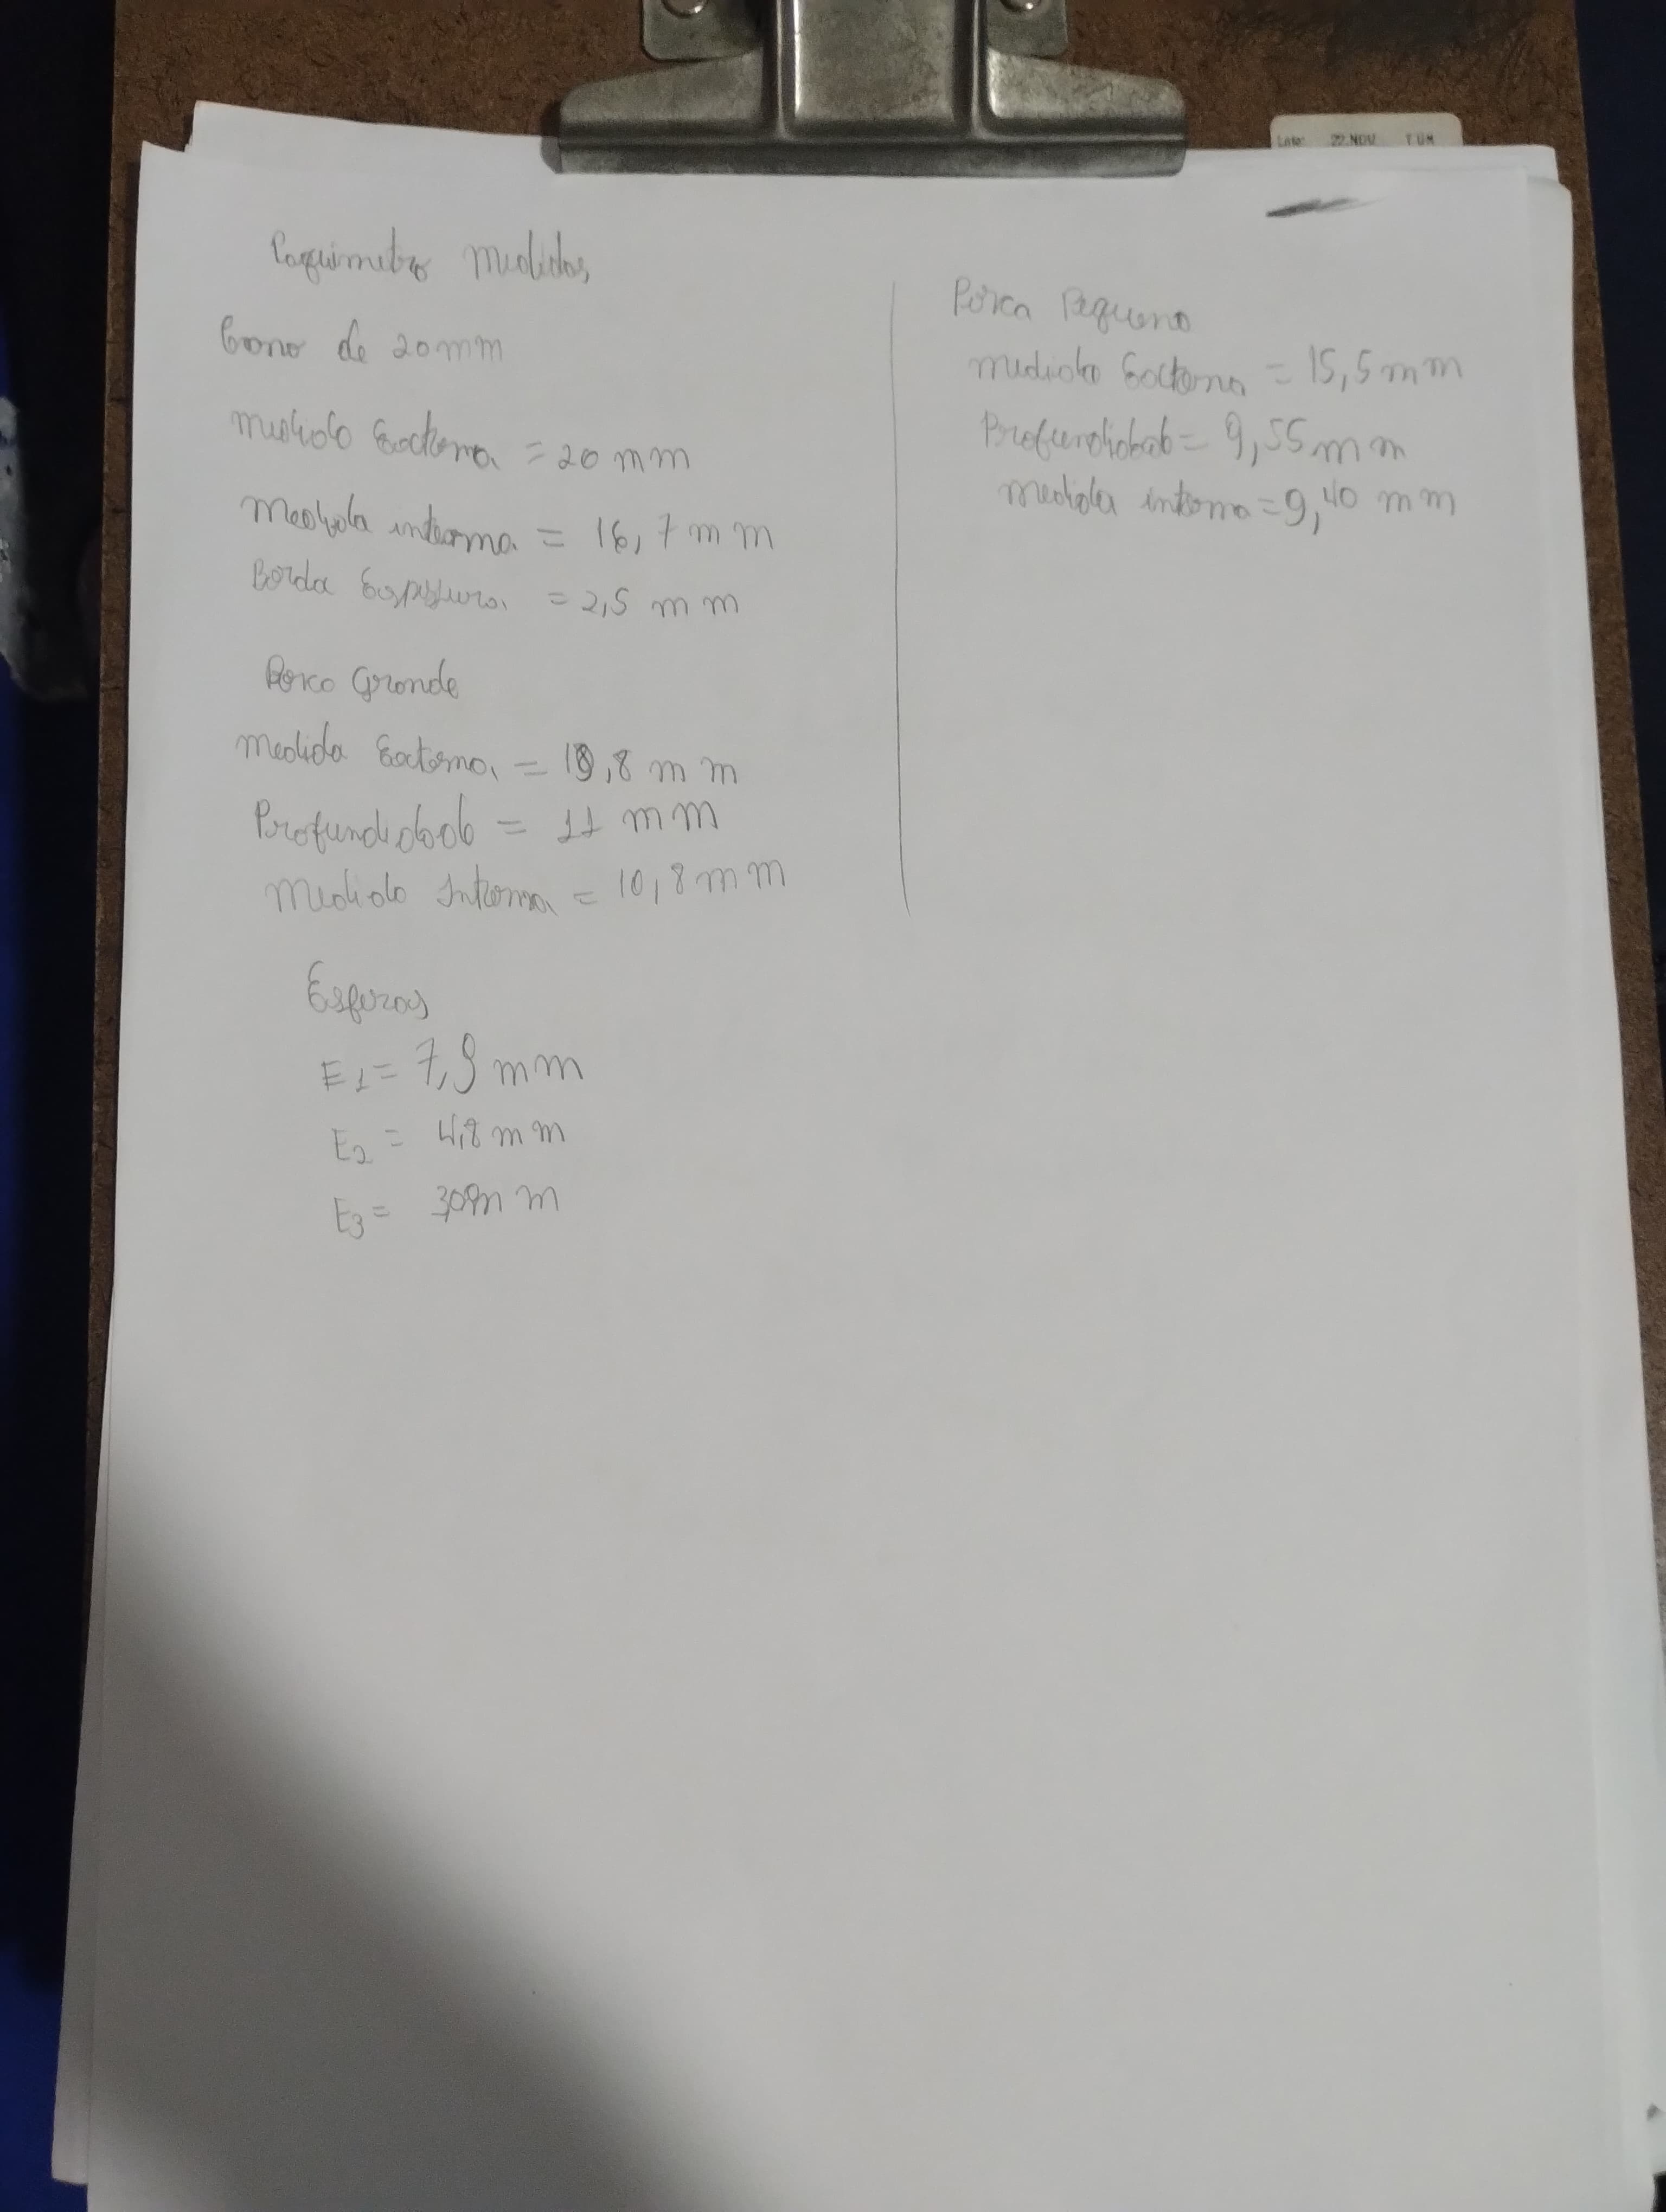 Paquimetro Medidas
Cano de 20mm
Medida Externa = 20 mm
Medida interna = 16,7 mm
Borda Espessura = 2,5 mm
Porca Grande
Medida Externa = 18,8 mm
Profundidade = 11 mm
Medida Interna = 10,8 mm
Esferas
E1 = 7,9 mm
E2 = 4,8 mm
E3 = mm
Porca Pequena
Medida Externa = 15,5 mm
Profundidade = 9,55 mm
Medida interna = 9,40 mm
22 NOV